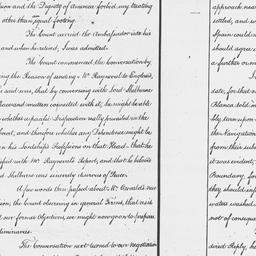 sion and the Dignity of America forbid my treating
other than equal footing.
The Count carried the Ambassador into his
and when he retired, I was admitted.
The Count commenced the Conversation by
ing the Reason of sending Mr Rayneval to England,
he said was, that by conversing with Lord Shelburne
Peace and matters connected with it, he might be able
whether a pacific Disposition really prevailed in the
Court, and therefore whether any Dependence might be
on his Lordships Professions on that Head. that he
satisfied with Mr Rayneval's Report, and that he believed
Lord Shelburne was sincerely desirous of Peace.
A few words then passed about Mr Oswald's
sion, the Count observing in general Terms, that
our former Objections, we might now go on to prepare
preliminaries.
The Conversation next turned to our negotiation
approach near
settled, and un
Spain could n
should agree
a further or m
I
date, for that
Blanca told m
bly term upon
the Navigation
from thro
it was evident,
Boundary, for
they should inf
waters washed
not of consequ
dried Reply, he